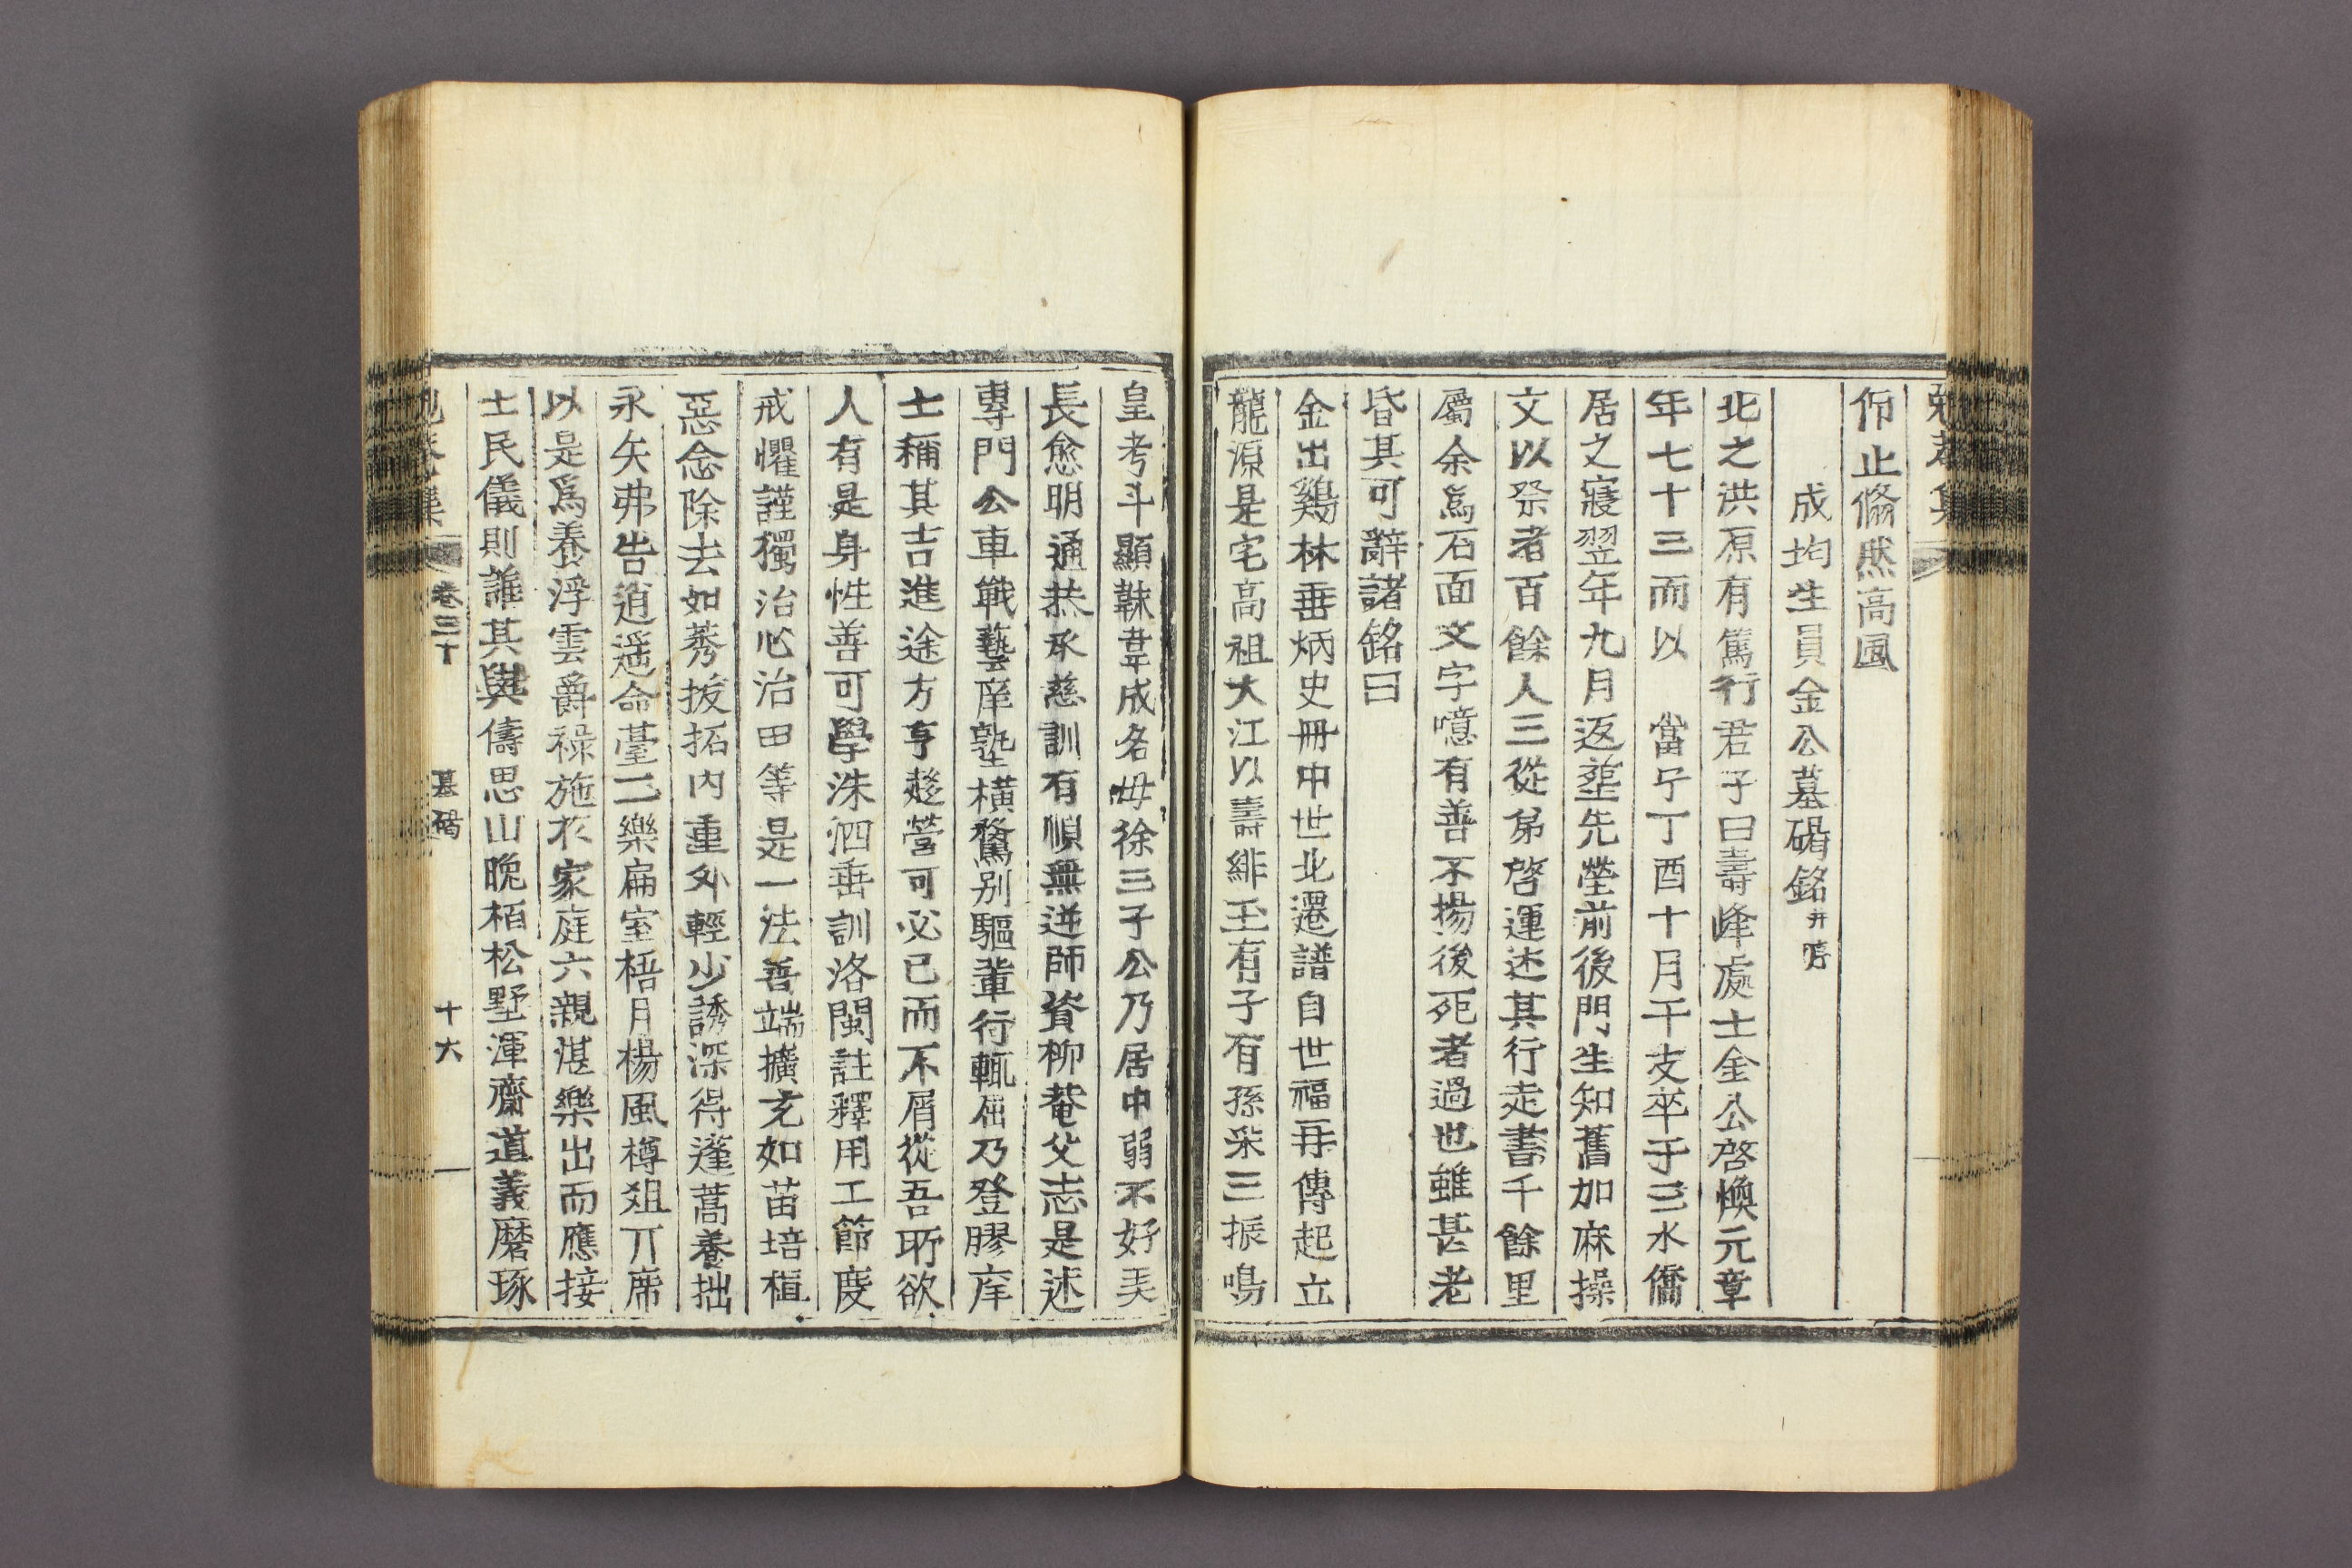 仰止翛然高風
成均生員金公墓碣銘 并序
北之洪原有篤行君子曰壽峰處士金公啓煥元章
年七十三而以 當宁丁酉十月干支卒于三水僑
居之寢翌年九月返塟先塋前後門生知舊加麻操
文以祭者百餘人三從弟啓運述其行走書千餘里
屬余爲石面文字噫有善不揚後死者過也雖甚老
昏其可辭諸銘曰
金出鷄林垂炳史冊中世北遷譜自世福再傳起立
龍源是宅高祖大江以壽緋玉有子有孫采三振鳴
皇考斗顯韎韋成名母徐三子公乃居中弱不好弄
長愈明通恭承慈訓有順無逆師資柳菴父志是述
專門公車戰藝庠塾橫騖別驅輩行輒屈乃登膠庠
士稱其吉進途方亨趍營可必已而不屑從吾所欲
人有是身性善可學洙泗垂訓洛閩註釋用工節度
戒懼謹獨治心治田等是一法善端擴充如苗培植
惡念除去如莠拔拓內重外輕少誘深得蓬蒿養拙
永矢弗告逍遥命臺二樂扁室梧月楊風樽爼丌席
以是爲養浮雲爵祿施於家庭六親湛樂出而應接
士民儀則誰其與儔思山晩栢松墅渾齋道義磨琢
卷三十
墓碣
十六